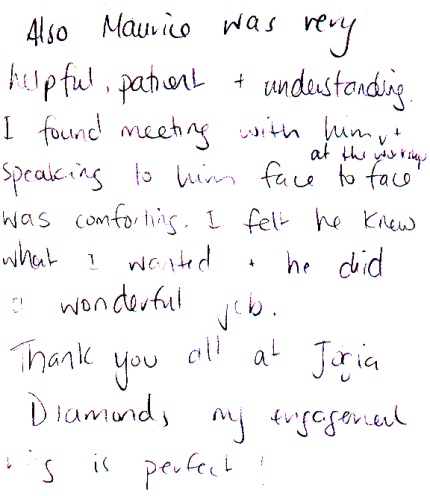 Also Maurice was very
helpful, patient + understanding.
I found meeting with him, +
at the workshop
speaking to him face to face
was comforting. I felt he knew
what I wanted + he did
a wonderful job.
Thank you all at Joria
Diamonds, my engagement
ring is perfect!